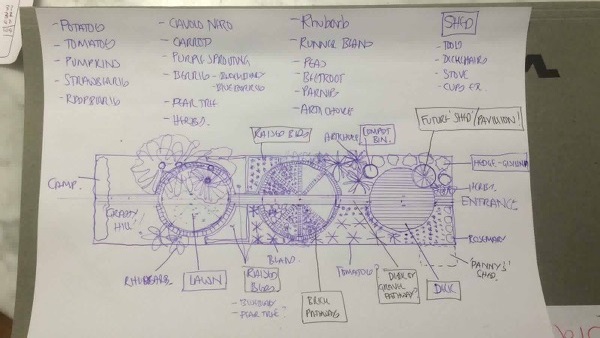 - POTATOES
- TOMATOES
- PUMPKINS
- STRAWBERRIES
- RASPBERRIES
- CAVOLO NERO
- CARROTS
- PURPLE SPROUTING
- BERRIES - BLACKBERRIES
BLUEBERRIES
- PEAR TREE
- HERBS.
- Rhubarb
- RUNNER BEANS
- PEAS
- BEETROOT
- PARSNIPS
- ARTICHOKE
SHED
- TOOLS
- DECKCHAIRS
- STOVE
- CUPS
RAISED BEDS
ARTICHOKE
COMPOST BIN.
FUTURE 'SHED'/PAVILION!
CAMP.
HEDGE -
HERBS.
ENTRANCE
'GRASSY HILL'!
ROSEMARY
RHUBARB
LAWN
BEANS
RAISED BEDS
- PEAR TREE.
BRICK PATHWAYS
TOMATOES?
GRAVEL PATHWAY?
DECK
'DANNY'S' SHED.